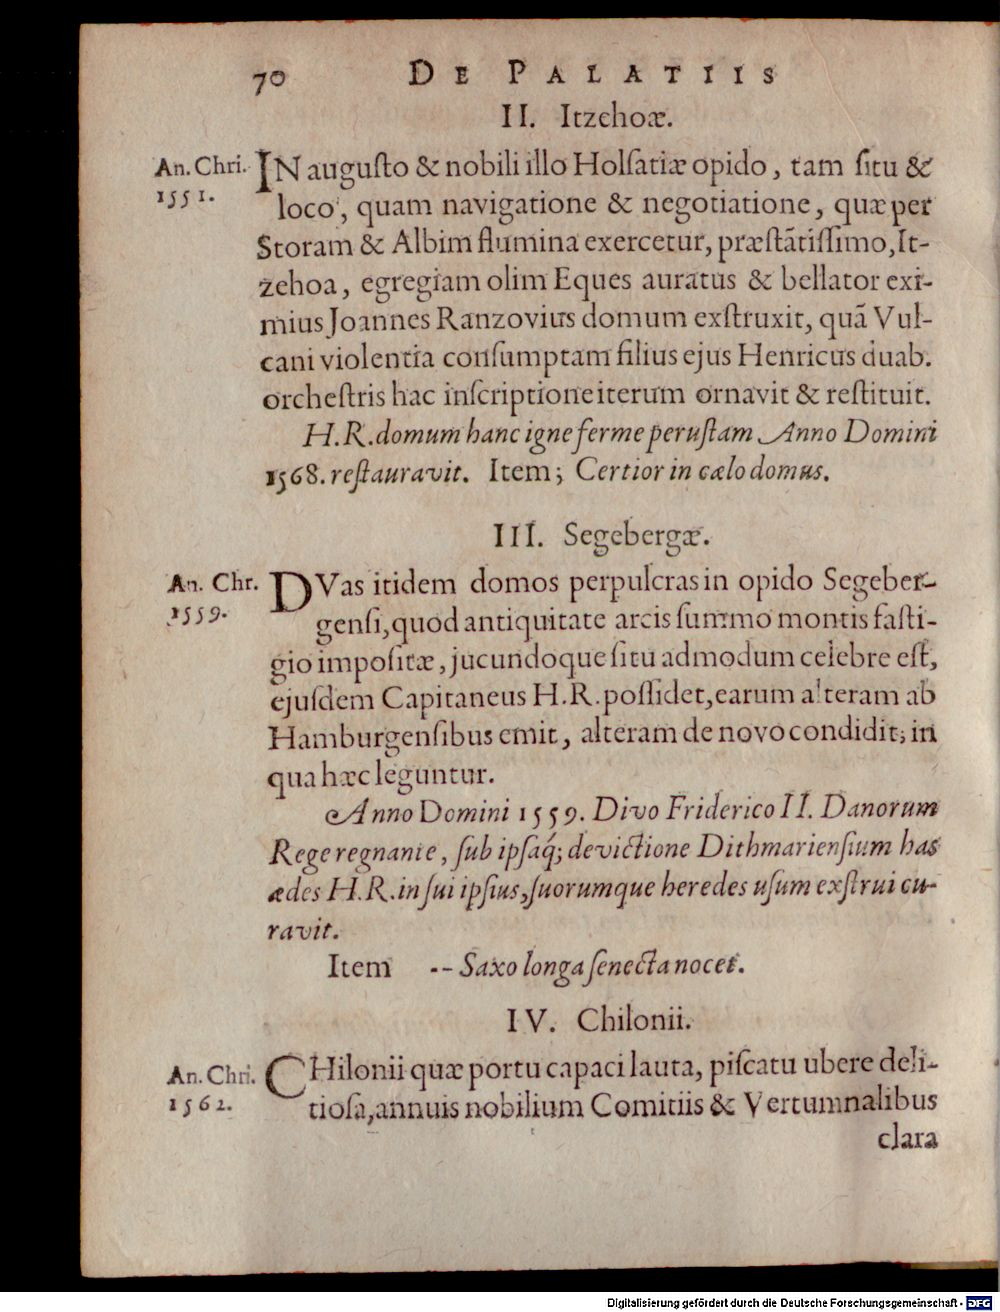 70 DE PALATIIS
II. Itzehoæ.
An. Chri. 1551.
IN augusto & nobili illo Holsatiæ opido, tam situ &
loco, quam navigatione & negotiatione, quæ per
Storam & Albim flumina exercetur, præstātissimo, It-
zehoa, egregiam olim Eques auratus & bellator exi-
mius Joannes Ranzovius domum exstruxit, quā Vul-
cani violentia consumptam filius ejus Henricus duab.
orchestris hac inscriptione iterum ornavit & restituit.
H.R. domum hanc igne ferme perustam Anno Domini
1568. restauravit. Item; Certior in cælo domus.
III. Segebergæ.
An. Chr. 1559.
DVas itidem domos perpulcras in opido Segeber-
gensi, quod antiquitate arcis summo montis fasti-
gio impositæ, jucundoque situ admodum celebre est,
ejusdem Capitaneus H.R. possidet, earum alteram ab
Hamburgensibus emit, alteram de novo condidit; in
qua hæc leguntur.
Anno Domini 1559. Divo Friderico II. Danorum
Rege regnante, sub ipsaq́; devictione Dithmariensium has
ædes H.R. in sui ipsius, suorumque heredes usum exstrui cu-
ravit.
Item -- Saxo longa senecta nocet.
IV. Chilonii.
An. Chri. 1562.
CHilonii quæ portu capaci lauta, piscatu ubere deli-
tiosa, annuis nobilium Comitiis & Vertumnalibus
clara
Digitalisierung gefördert durch die Deutsche Forschungsgemeinschaft - DFG